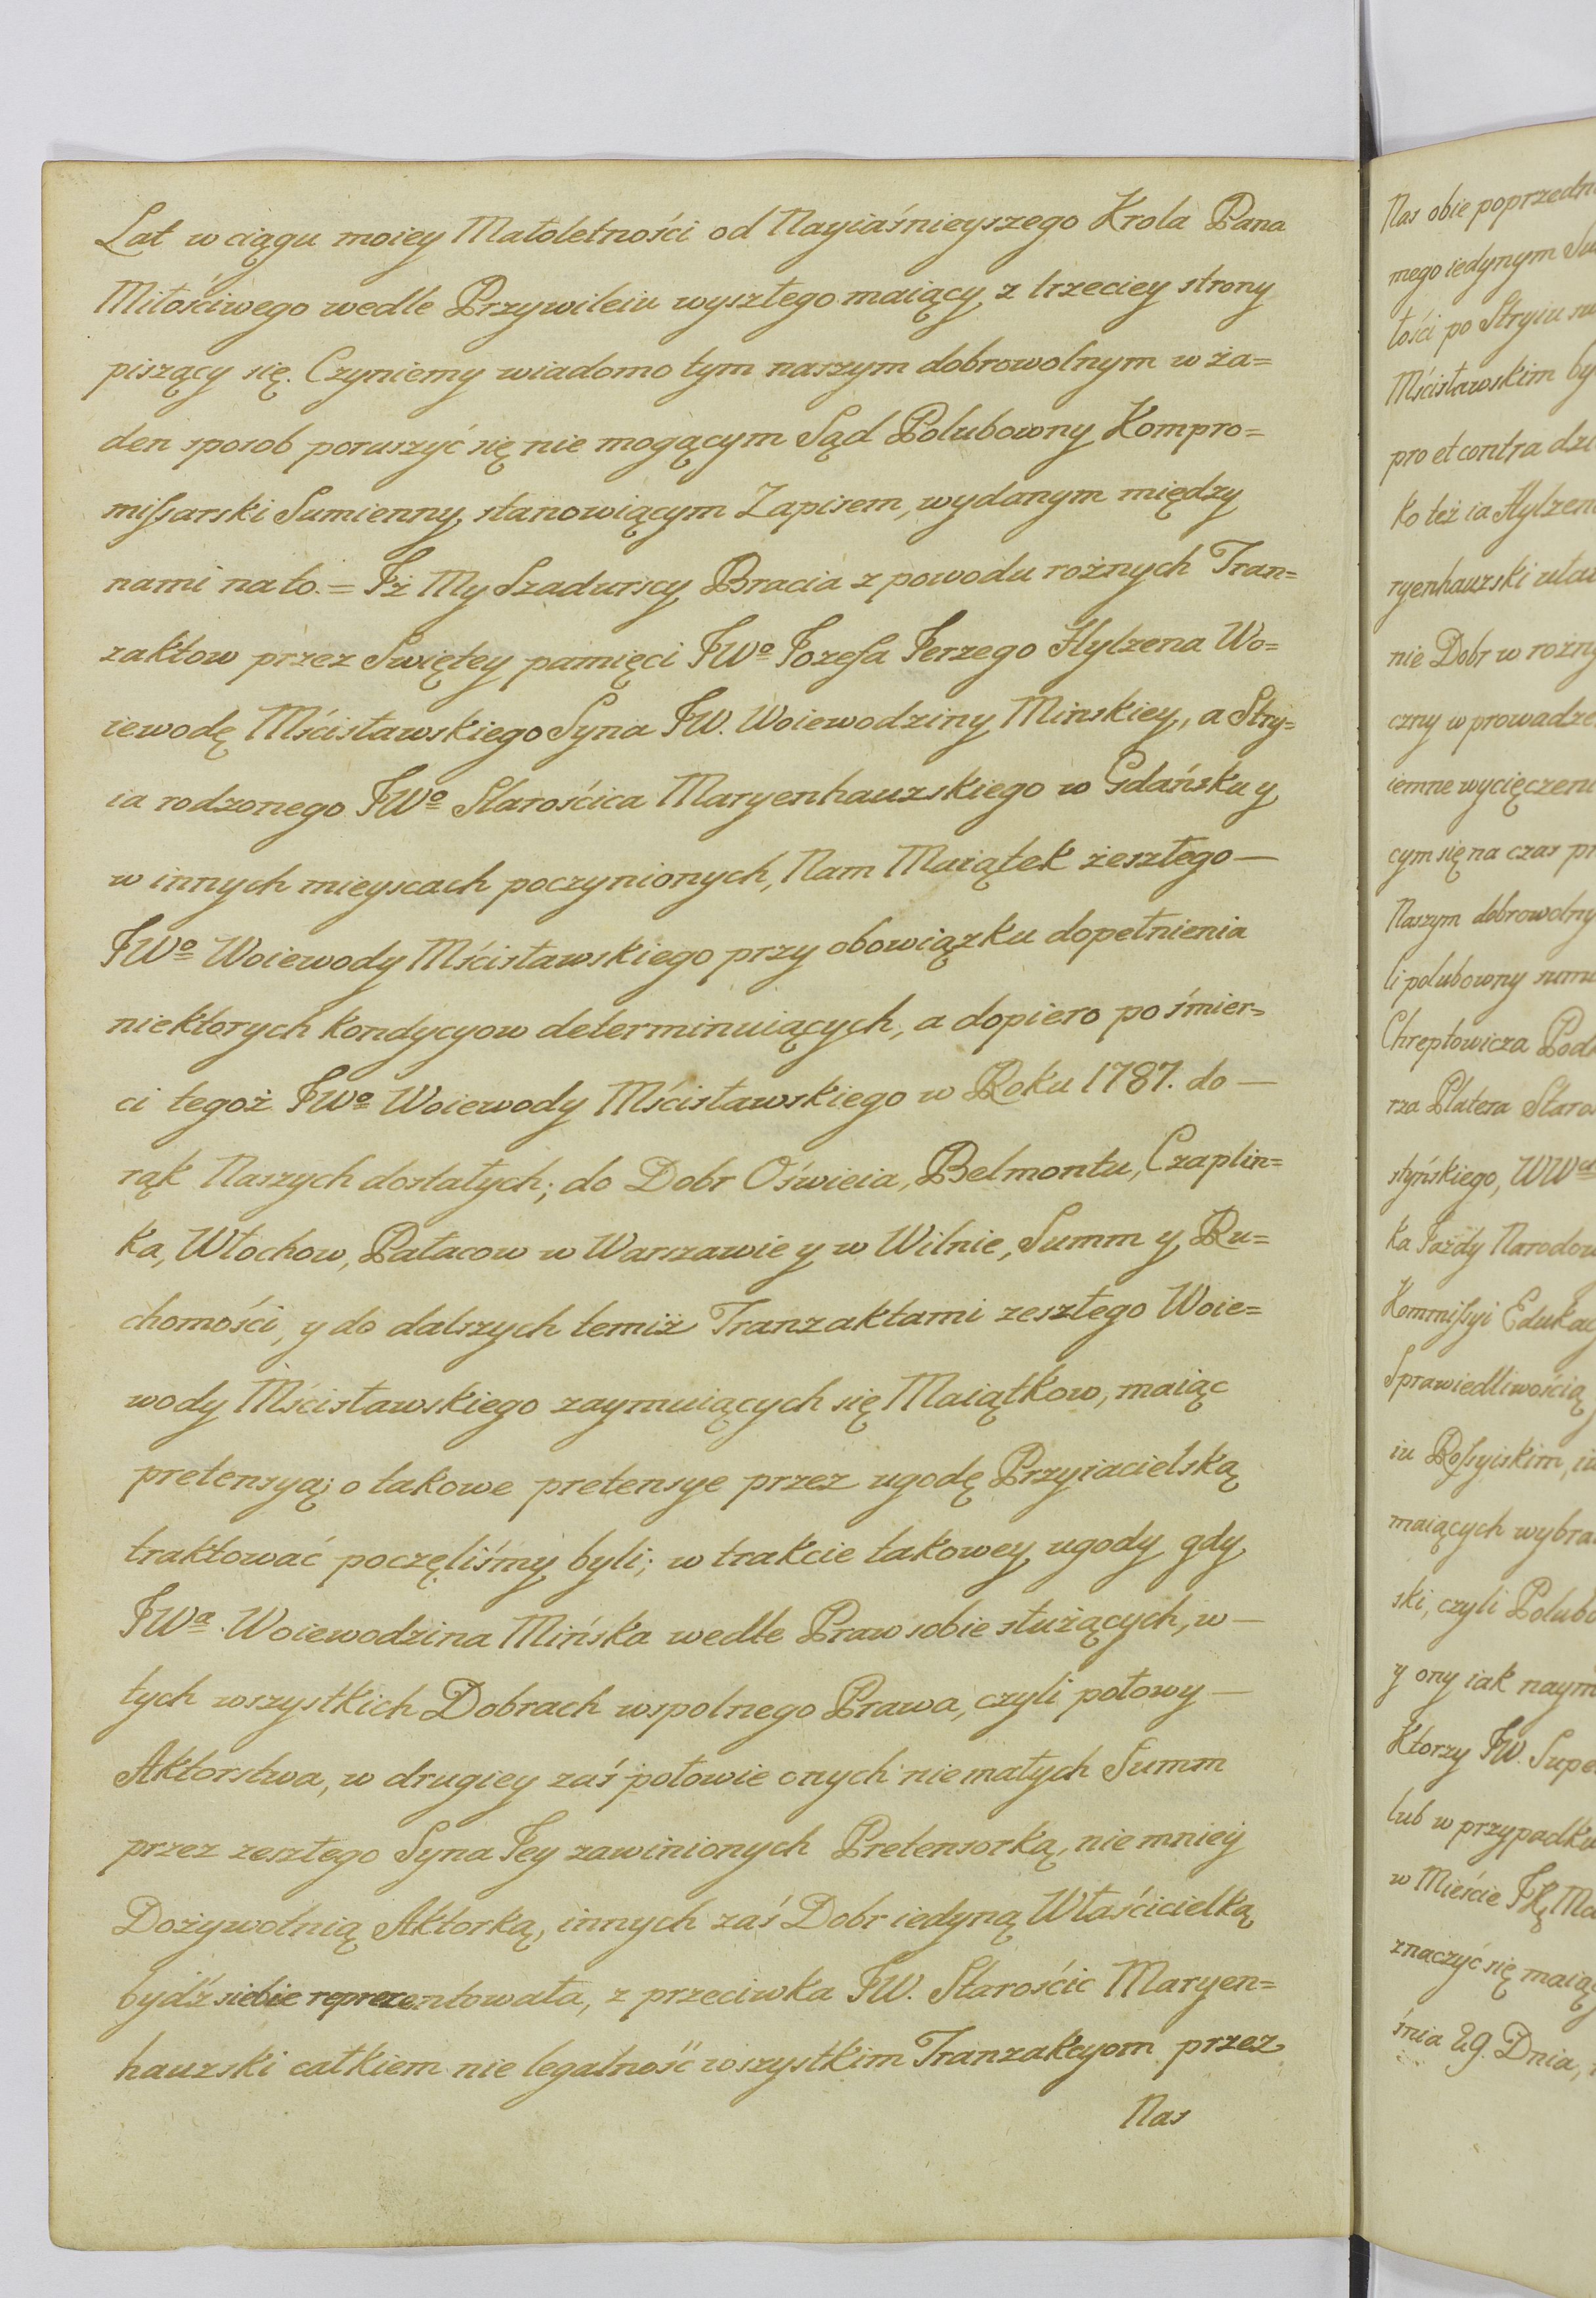 Lat w ciągu moiey Małoletności od Nayiaśnieyszego Krola Pana
Miłościwego wedle Przywileiu wyszłego maiący, z trzeciey strony
piszący się. Czyniemy wiadomo tym naszym dobrowolnym w ża=
den sposob poruszyć się nie mogącym Sąd Polubowny Kompro=
missarski Sumienny stanowiącym Zapisem, wydanym między
nami na to. = Iż My Szadurscy Bracia z powodu rożnych Tran=
zaktow przez Swiętey pamięci JWo Jozefa Jerzego Hylzena Wo=
iewodę Mścisławskiego Syna JW. Woiewodziny Minskiey, a Stry=
ia rodzonego JWo Starościca Maryenhauzskiego w Gdańsku y
w innych mieyscach poczynionych, Nam Maiątek zeszłego —
JWo Woiewody Mścisławskiego przy obowiązku dopełnienia
niektorych kondycyow determinuiących, a dopiero po śmier=
ci tegoż JWo Woiewody Mścisławskiego w Roku 1787. do —
rąk Naszych dostałych; do Dobr Oświeia, Belmontu, Czaplin=
ka, Włochow, Pałacow w Warszawie y w Wilnie, Summ y Ru=
chomości, y do dalszych temiż Tranzaktami zeszłego Woie=
wody Mścisławskiego zaymuiących się Maiątkow, maiąc
pretensyą; o takowe pretensye przez ugodę Przyiacielską
traktować poczęliśmy byli; w trakcie takowey ugody gdy
JWa. Woiewodzina Mińska wedle Praw sobie służących, w —
tych wszystkich Dobrach wspolnego Prawa, czyli połowy —
Aktorstwa, w drugiey zaś połowie onych niemałych Summ
przez zeszłego Syna Jey zawinionych Pretensorką, nie mniey
Dożywotnią Aktorką, innych zaś Dobr iedyną Właścicielką
bydź siebie reprezentowała, z przeciwka JW. Starościc Maryen=
hauzski całkiem nie legalność wszystkim Tranzakcyom przez
Nas
Nas obie poprzedn
mego iedynym Su
łości po Stryiu
Mścisławskim by
pro et contra dzi
ko też ia Hylzen
ryenhauzski
nie Dobr w rożny
czny w prowadze
iemne wycięczeni
cym się na czas pr
Naszym dobrowolny
li polubowny sumi
Chreptowicza Pod
rza Platera Staro
styńskiego, WWa
ka Jazdy Narodow
Kommissyi Edukac
Sprawiedliwością
iu Rossyiskim,
maiących wybra
ski, czyli Polubo
y ony iak naym
Ktorzy JW. Supe
lub w przypadku
w Mieście
znaczyć się maią
śnia 29. Dnia,